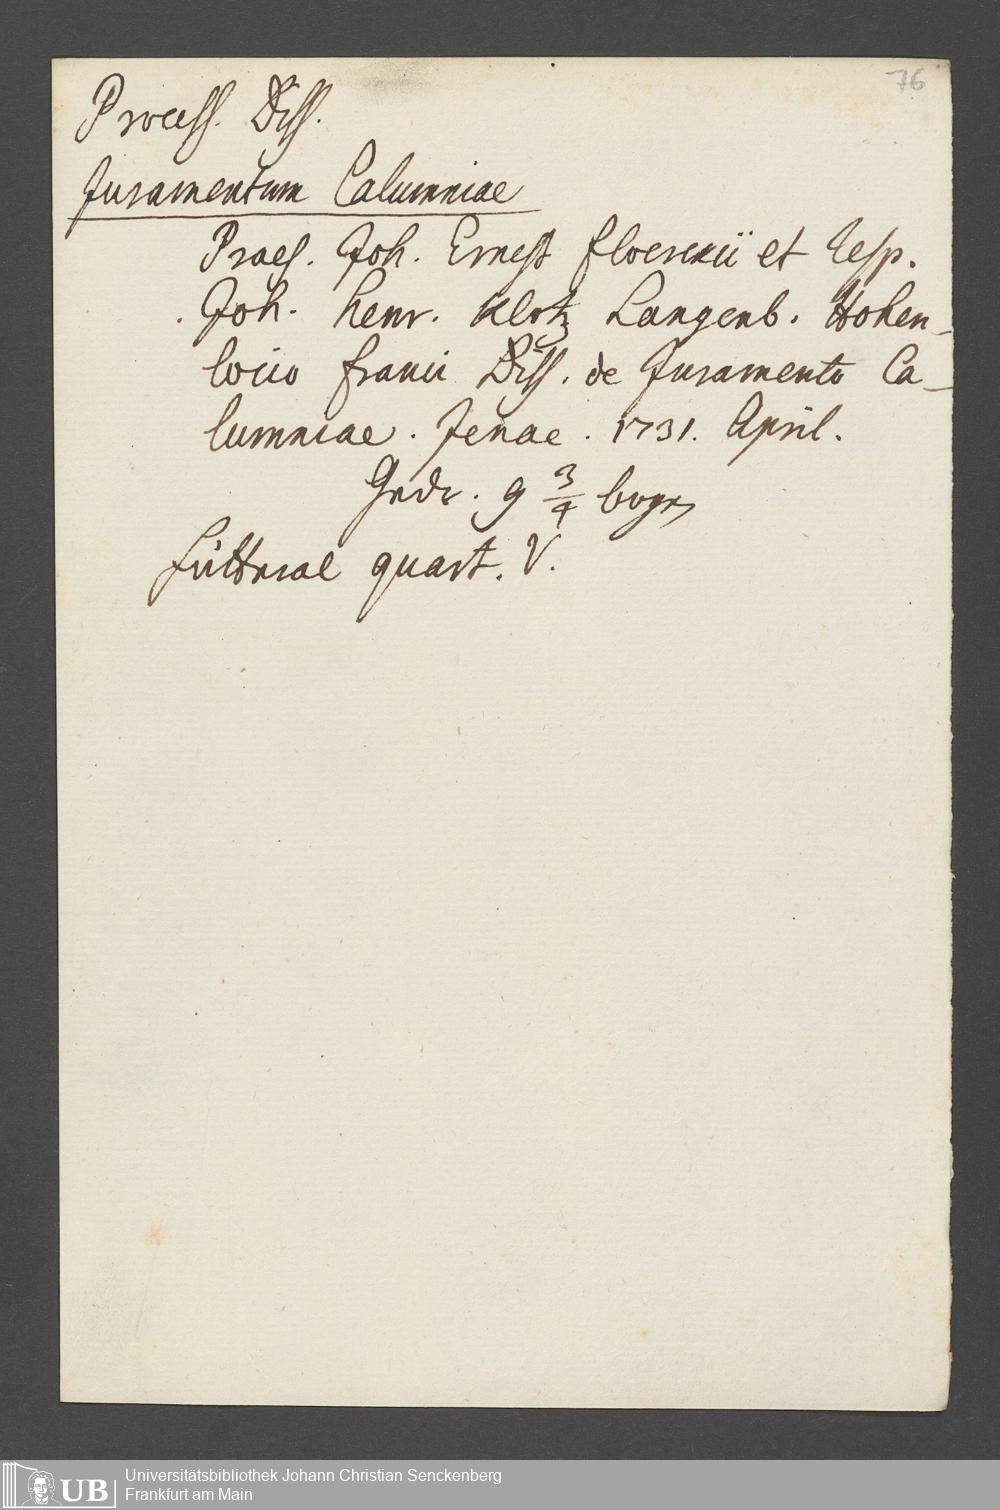 76
Process. Diss.
Juramentum Calumniae
Praes. Joh. Ernest Floerckii et Resp.
Joh. Henr. Klotz Langenb. Hohen-
loico Franci Diss. de Juramento Ca-
lumniae. Jenae. 1731. April.
Gedr. 9 3/4 bogen
Futteral quart. V.
UB
Universitätsbibliothek Johann Christian Senckenberg
Frankfurt am Main